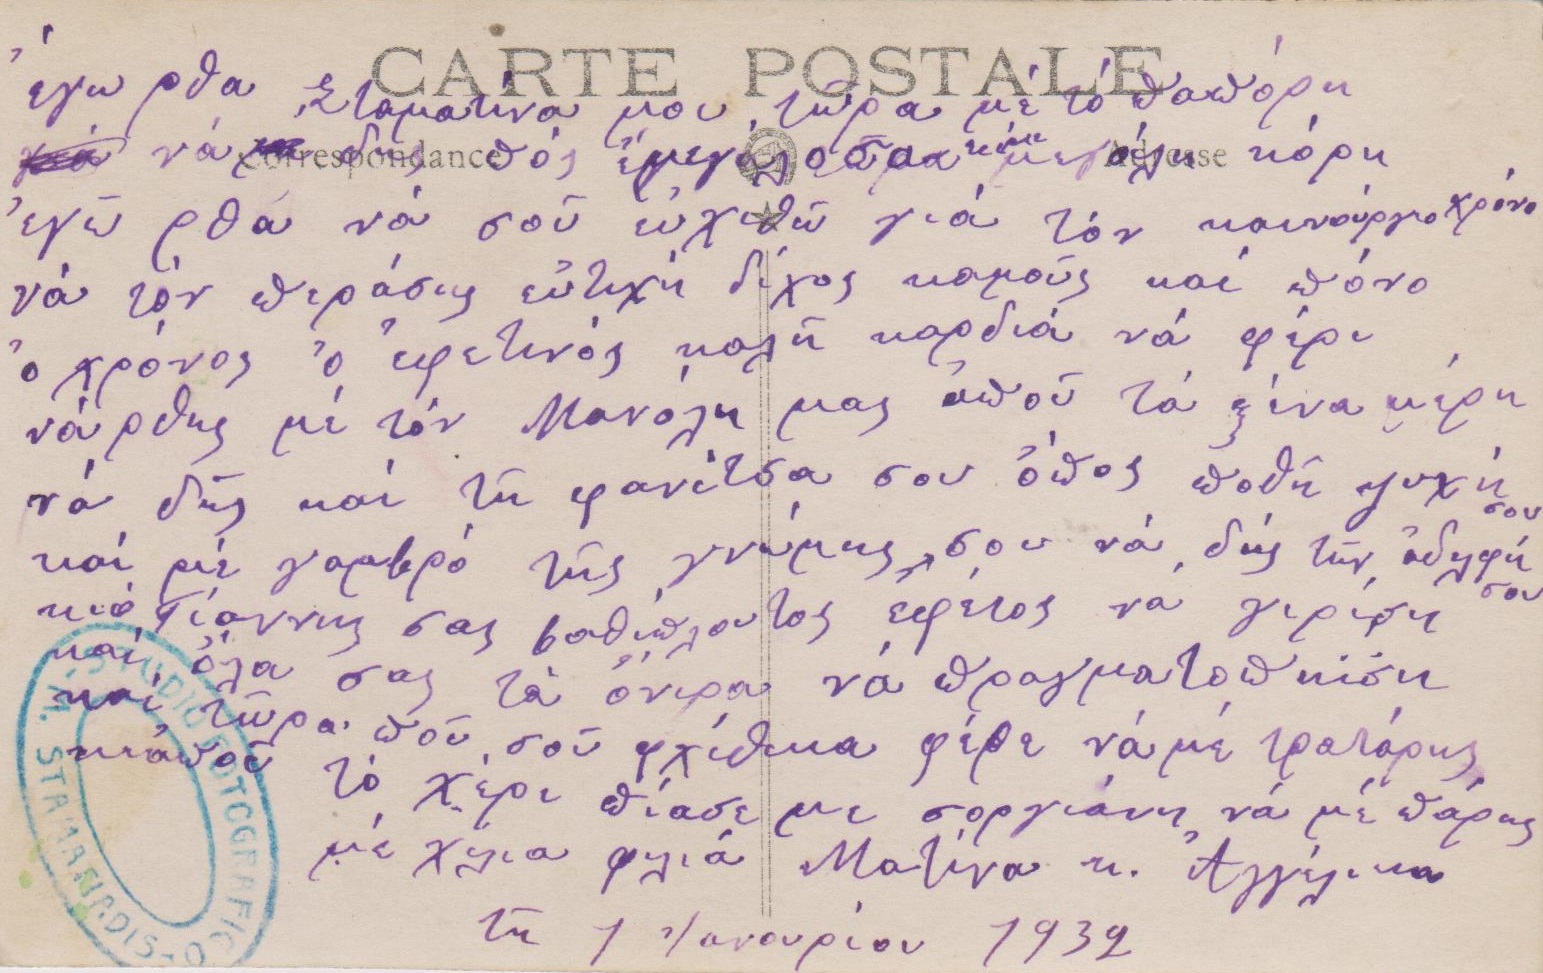 CARTE POSTALE
Correspondance
Adresse
ἐγω ρθα Σταματίνα μου τώρα μέ τό παπόρη
νά δης πός ἐμεγάλοσα μεγάλη κόρη
ἐγῶ ρθα νά σοῦ εὐχιθῶ γιά τόν καινούργιο χρόνο
νά τόν περάσης εὐτιχῆ δίχος καμούς καί πόνο
ὀ χρόνος ὀ ἐφετινός καλῆ καρδιά νά φέρι
νάρθης μέ τόν Μανόλη μας ἀποῦ τά ξένα μέρη
νά δῆς καί τῆ φανίτσα σου ὀπος ποθῆ ψυχή σου
καί μέ γαμβρό τῆς γνώμης σου νά δῆς τήν ἀδηλφή σου
κιό Γίαννης σας βαθίπλουτος ἐφέτος νά γιρίση
καί ὀλα σας τά ὀνιρα νά πραγματοπηίση
καί τῶρα ποῦ σοῦ φχίθικα φέρε νά μέ τρατάρης
κιἀποῦ τό χέρι πίασε με σοργιάνη νά μέ πάρης
μέ χίλια φιλιά Ματίνα κ. Ἀγγέλικα
τη 1 Ἰανουαρίου 1932
STUDIO FOTOGRAFICO
STAMARNADIS